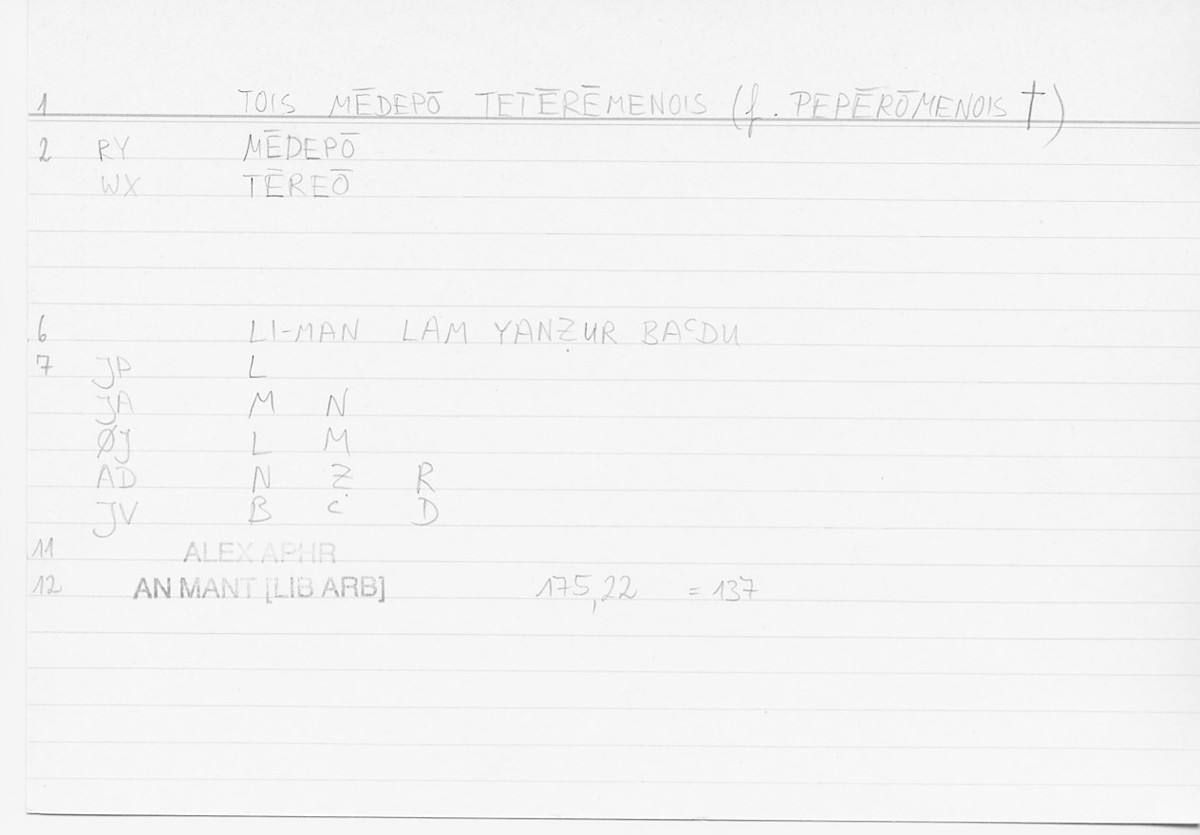 1 TOIS MĒDEPŌ TETĒRĒMENOIS (f. PEPĒRŌMENOIS †)
2 RY MĒDEPŌ
WX TĒREŌ
6 LI-MAN LAM YANẒUR BAʿDU
7 JP L
JA M N
ØJ L M
AD N Ẓ R
JV B ʿ D
11 ALEX APHR
12 AN MANT [LIB ARB] 175,22 = 137